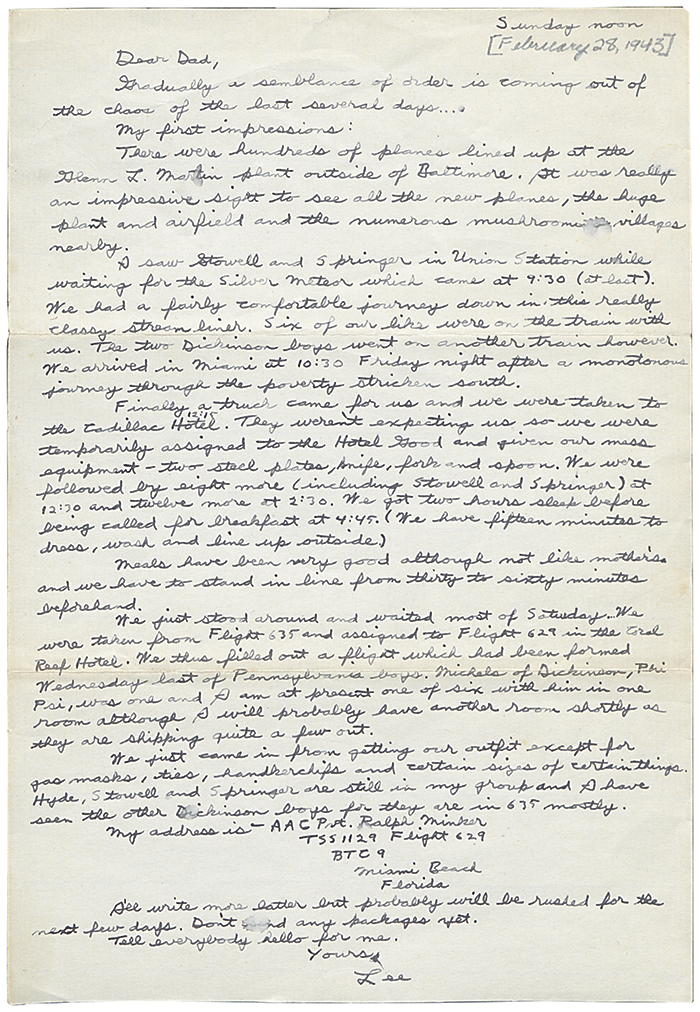 Sunday noon
[February 28, 1943]
Dear Dad,
Gradually a semblance of order is coming out of
the chaos of the last several days....
My first impressions:
There were hundreds of planes lined up at the
Glenn L. Martin plant outside of Baltimore. It was really
an impressive sight to see all the new planes, the huge
plant and airfield and the numerous mushrooming villages
nearby.
I saw Stowell and Springer in Union Station while
waiting for the Silver Meteor which came at 9:30 (at last).
We had a fairly comfortable journey down in this really
classy stream liner. Six of our like were on the train with
us. The two Dickinson boys went on another train however.
We arrived in Miami at 10:30 Friday night after a monotonous
journey through the poverty stricken south.
Finally a truck came for us and we were taken to
12:15
the Cadillac Hotel. They weren't expecting us so we were
temporarily assigned to the Hotel Good and given our mess
equipment - two steel plates, knife, fork and spoon. We were
followed by eight more (including Stowell and Springer) at
12:30 and twelve more at 2:30. We got two hours sleep before
being called for breakfast at 4:45. (We have fifteen minutes to
dress, wash and line up outside.)
Meals have been very good although not like mother's
and we have to stand in line from thirty to sixty minutes
beforehand.
We just stood around and waited most of Saturday. We
were taken from Flight 635 and assigned to Flight 629 in the Coral
Reef Hotel. We thus filled out a flight which had been formed
Wednesday last of Pennsylvania boys. Michels of Dickinson, Phi
Psi, was one and I am at present one of six with him in one
room although I will probably have another room shortly as
they are shipping quite a few out.
We just came in from getting our outfit except for
gas masks, ties, handkerchifs and certain sizes of certain things.
Hyde, Stowell and Springer are still in my group and I have
seen the other Dickinson boys for they are in 635 mostly.
My address is - AAC Pvt. Ralph Minker
TSS 1129 Flight 629
BTC 9
Miami Beach
Florida
I'll write more latter but probably will be rushed for the
next few days. Don't send any packages yet.
Tell everybody hello for me.
Yours,
Lee